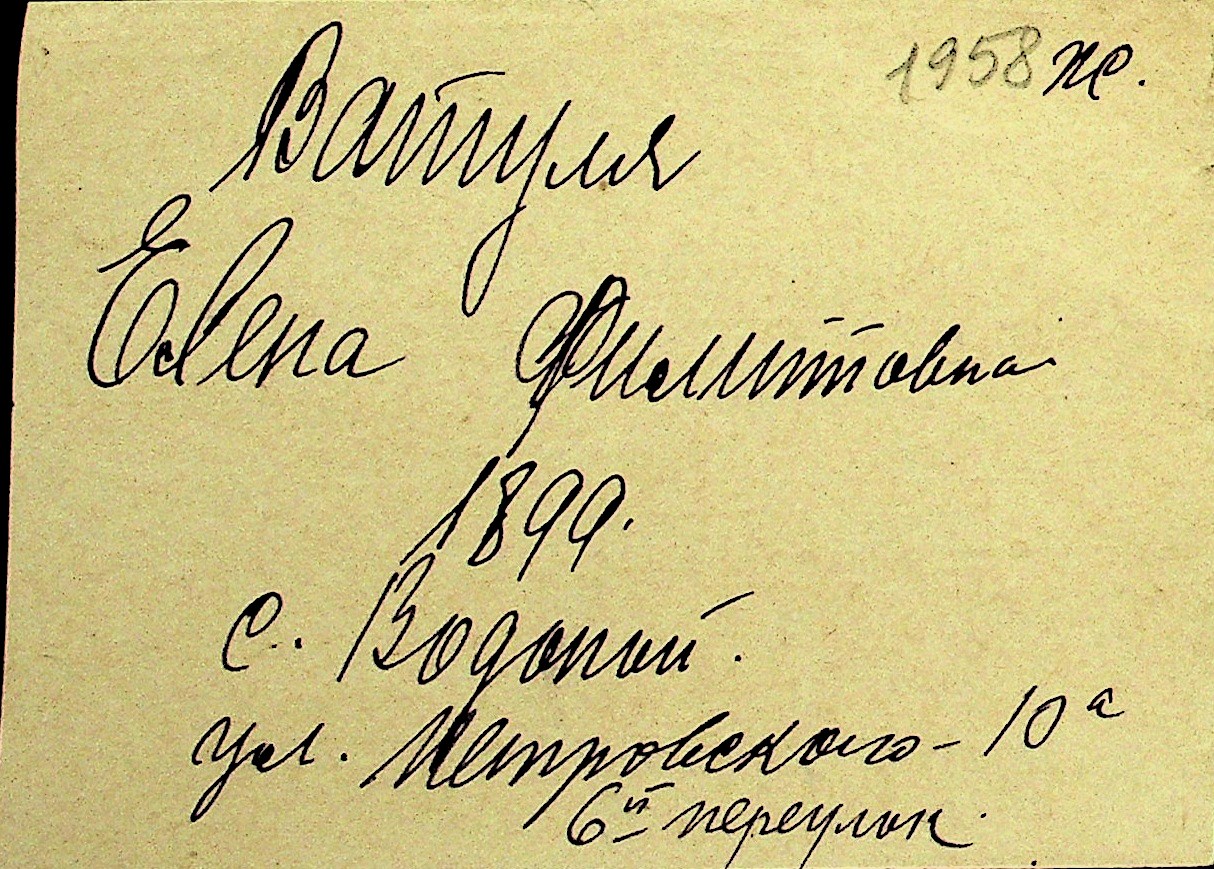 1958 ж.
Ватуля
Елена Филипповна
1899.
с. Водопой.
ул. Петровского - 10 а
6й переулок.